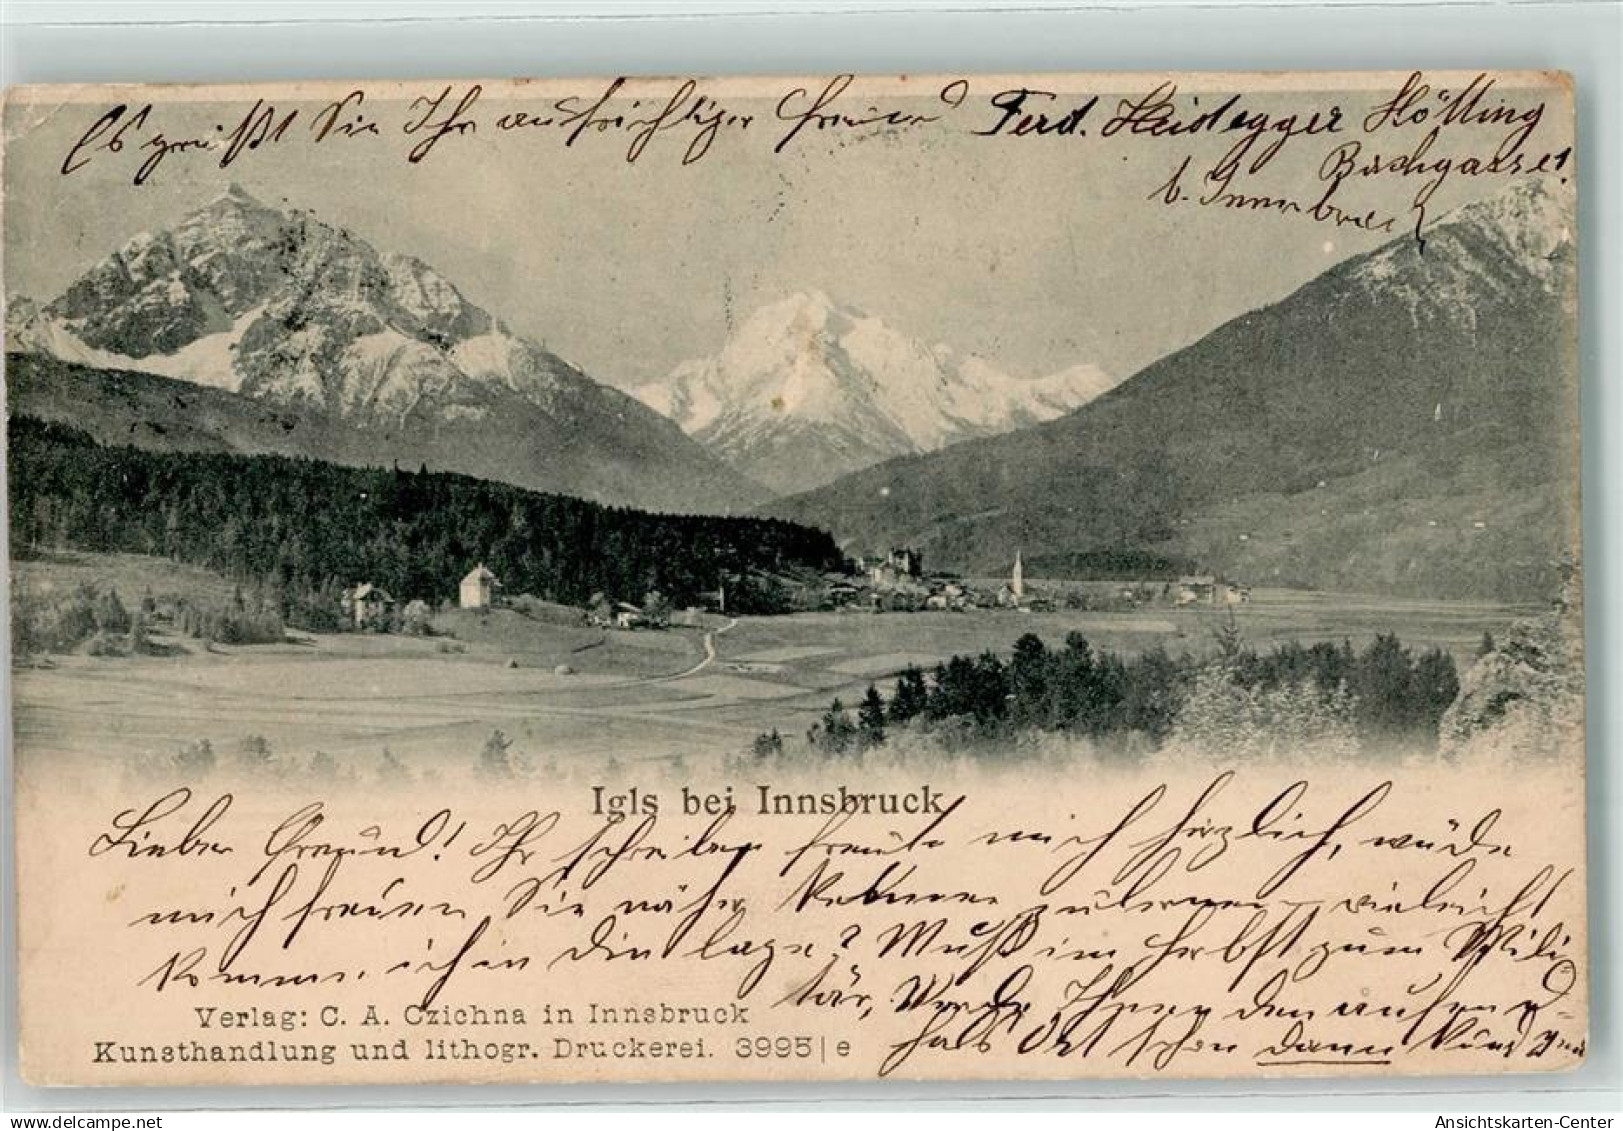 Es grüßt Sie Ihr aufrichtiger Freund Ferd. Heidegger Hötting
Bachgasse 1.
b. Innsbruck
Igls bei Innsbruck
Lieber Freund! Ihr schreiben freute mich herzlich, würde
mich freuen Sie näher kennen zulernen, vieleicht
komme ich in die lage? Muß im Herbst zum Mili-
tär, Werde Ihnen den aufend-
halts Ort schon dann kund
Verlag: C. A. Czichna in Innsbruck
Kunsthandlung und lithogr. Druckerei. 3995|e
www.delcampe.net
Ansichtskarten-Center